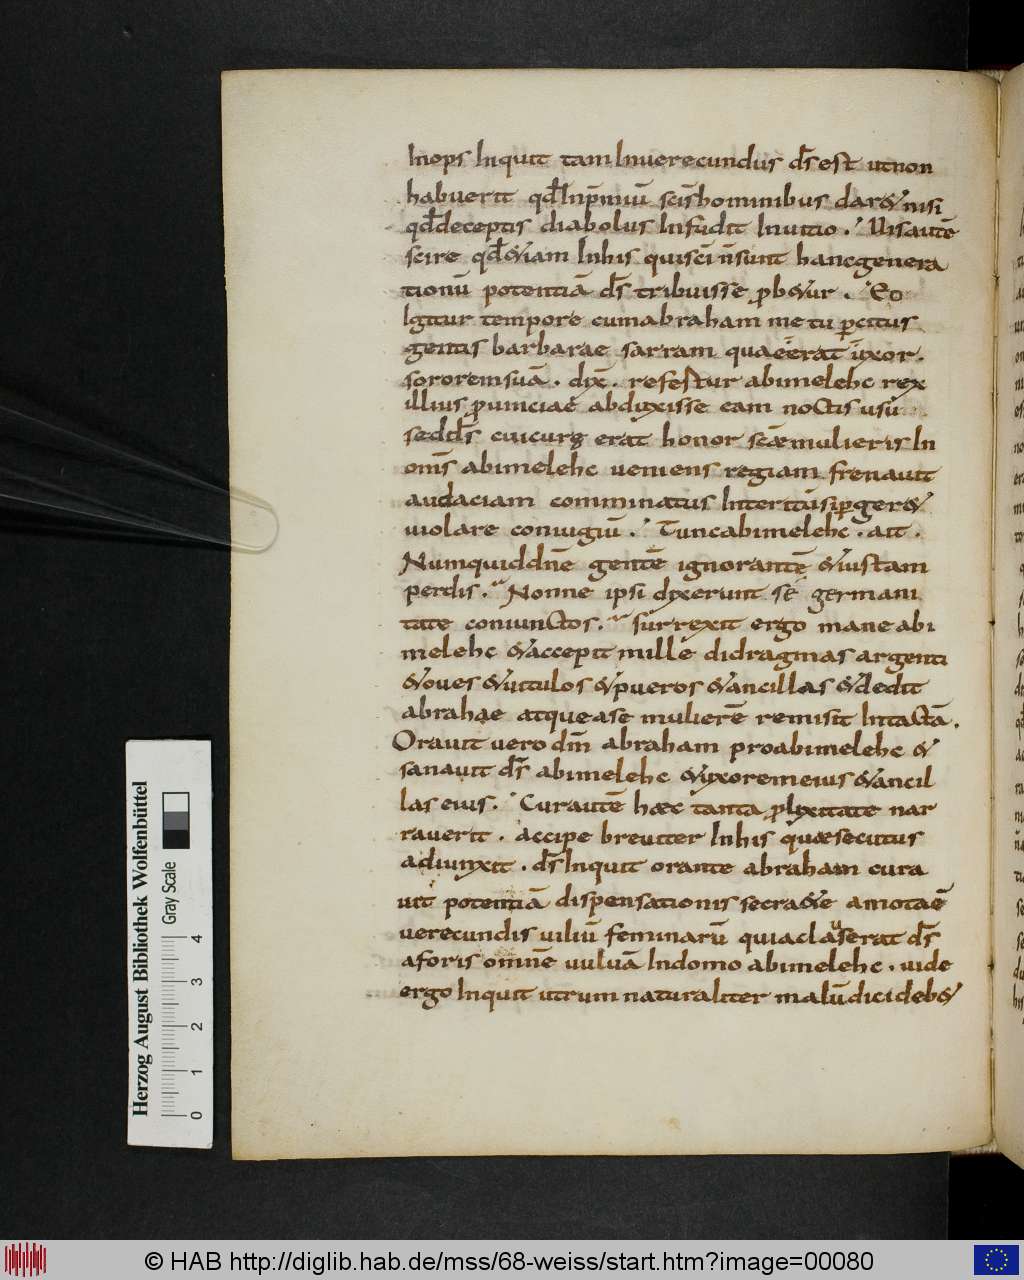 Inops Inquit tam Inuerecundus dſ̄ est utnon
habuerit qd̄ Inp̄miū sciſ̄hominibus dar& nisi
qd̄deceptis diabolus Infudit Inuitio. Nisautē
scire qd̄&iam Inhis quisc̄i n̄sunt hancgenera
tionū potentiā dſ̄ tribuisse ꝓb&ur. Eo
Igitur tempore cumabraham metu ꝑcitus
gentis barbarae sarram quaeerat uxor.
sororemsuā. dix̄. refestur abimelehc rex
illius ꝓuinciae abduxisse eam noctis usū
seddſ̄ cuicurę erat honor scǣmulieris In
omſ̄ abimelehc ueniens regiam frenauit
audaciam comminatus Interitūsiꝑger&
uiolare coniugiū. Tuncabimelehc. ait.
Numquiddnē gentē ignorantē &iustam
perdis. Nonne ipsi dyxerunt se germani
tate coniunctos. surrexit ergo mane abi
melehc &accepit mille didragmas argenti
&oues &uitulos &pueros &ancillas &dedit
abrahae atquease mulierē remisit Intactā.
Orauit uero dm̄ abraham proabimelehc &
sanauit dſ̄ abimelehc &yxoremeius &ancil
las eius. Curautē hæc tanta ꝓlixitate nar
rauerit. accipe breuiter Inhis quæsecutus
adiunxit. dſ̄Inquit orante abraham cura
uit potentiā dispensationis secra&e amotaē
uerecundis uiliū feminarū quiaclauserat dſ̄
aforis omnē uuluā Indomo abimelehc. uide
ergo Inquit utrum naturaliter malūdicideb&
Herzog August Bibliothek Wolfenbüttel
Gray Scale
0 1 2 3 4
© HAB http://diglib.hab.de/mss/68-weiss/start.htm?image=00080